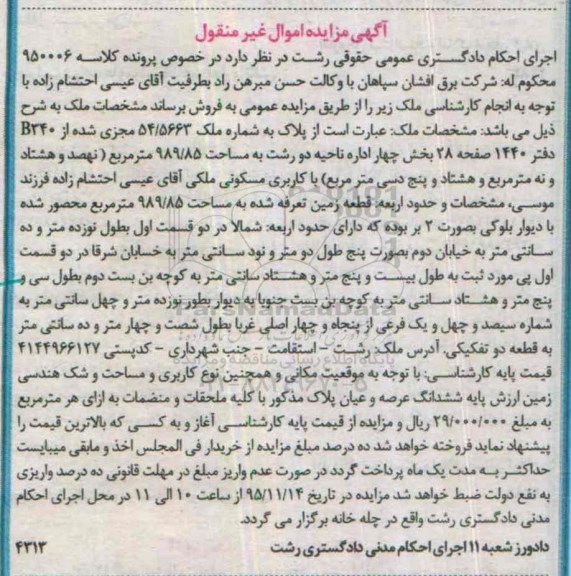 آگهی مزایده اموال غیر منقول
اجرای احکام دادگستری عمومی حقوقی رشت در نظر دارد در خصوص پرونده کلاسه ۹۵۰۰۰۶
محکوم له: شرکت برق افشان سپاهان با وکالت حسن میرهن راد بطرفیت آقای عیسی احتشام زاده با
توجه به انجام کارشناسی ملک زیر را از طریق مزایده عمومی به فروش برساند مشخصات ملک به شرح
ذیل می باشد: مشخصات ملک: عبارت است از پلاک به شماره ملک ۵۴/۵۶۶۳ مجزی شده از B۲۴۰
دفتر ۱۴۴۰ صفحه ۲۸ بخش چهار اداره ناحیه دو رشت به مساحت ۹۸۹/۸۵ مترمربع ( نهصد و هشتاد
و نه مترمربع و هشتاد و پنج دسی متر مربع) با کاربری مسکونی ملکی آقای عیسی احتشام زاده فرزند
موسی، مشخصات و حدود اربعه: قطعه زمین تعرفه شده به مساحت ۹۸۹/۸۵ مترمربع محصور شده
با دیوار بلوکی بصورت ۲ بر بوده که دارای حدود اربعه: شمالا در دو قسمت اول بطول نوزده متر و ده
سانتی متر به خیابان دوم بصورت پنج طول دو متر و نود سانتی متر به خسابان شرقا در دو قسمت
اول پی مورد ثبت به طول بیست و پنج متر و هشتاد سانتی متر به کوچه بن بست دوم بطول سی و
پنج متر و هشتاد سانتی متر به کوچه بن بست جنوبا به دیوار بطور نوزده متر و چهل سانتی متر به
شماره سیصد و چهل و یک فرعی از پنجاه و چهار اصلی غربا بطول شصت و چهار متر و ده سانتی متر
به قطعه دو تفکیکی. آدرس ملک: رشت - استقامت - جنب شهرداری - کدپستی ۴۱۴۴۹۶۶۱۲۷
قیمت پایه کارشناسی: با توجه به موقعیت مکانی و همچنین نوع کاربری و مساحت و شک هندسی
زمین ارزش پایه ششدانگ عرصه و عیان پلاک مذکور با کلیه ملحقات و منضمات به ازای هر مترمربع
به مبلغ ۲۹/۰۰۰/۰۰۰ ریال و مزایده از قیمت پایه کارشناسی آغاز و به کسی که بالاترین قیمت را
پیشنهاد نماید فروخته خواهد شد ده درصد مبلغ مزایده از خریدار فی المجلس اخذ و مابقی میبایست
حداکثر به مدت یک ماه پرداخت گردد در صورت عدم واریز مبلغ در مهلت قانونی ده درصد واریزی
به نفع دولت ضبط خواهد شد مزایده در تاریخ ۹۵/۱۱/۱۴ از ساعت ۱۰ الی ۱۱ در محل اجرای احکام
مدنی دادگستری رشت واقع در چله خانه برگزار می گردد.
دادورز شعبه ۱۱ اجرای احکام مدنی دادگستری رشت ۴۳۱۳